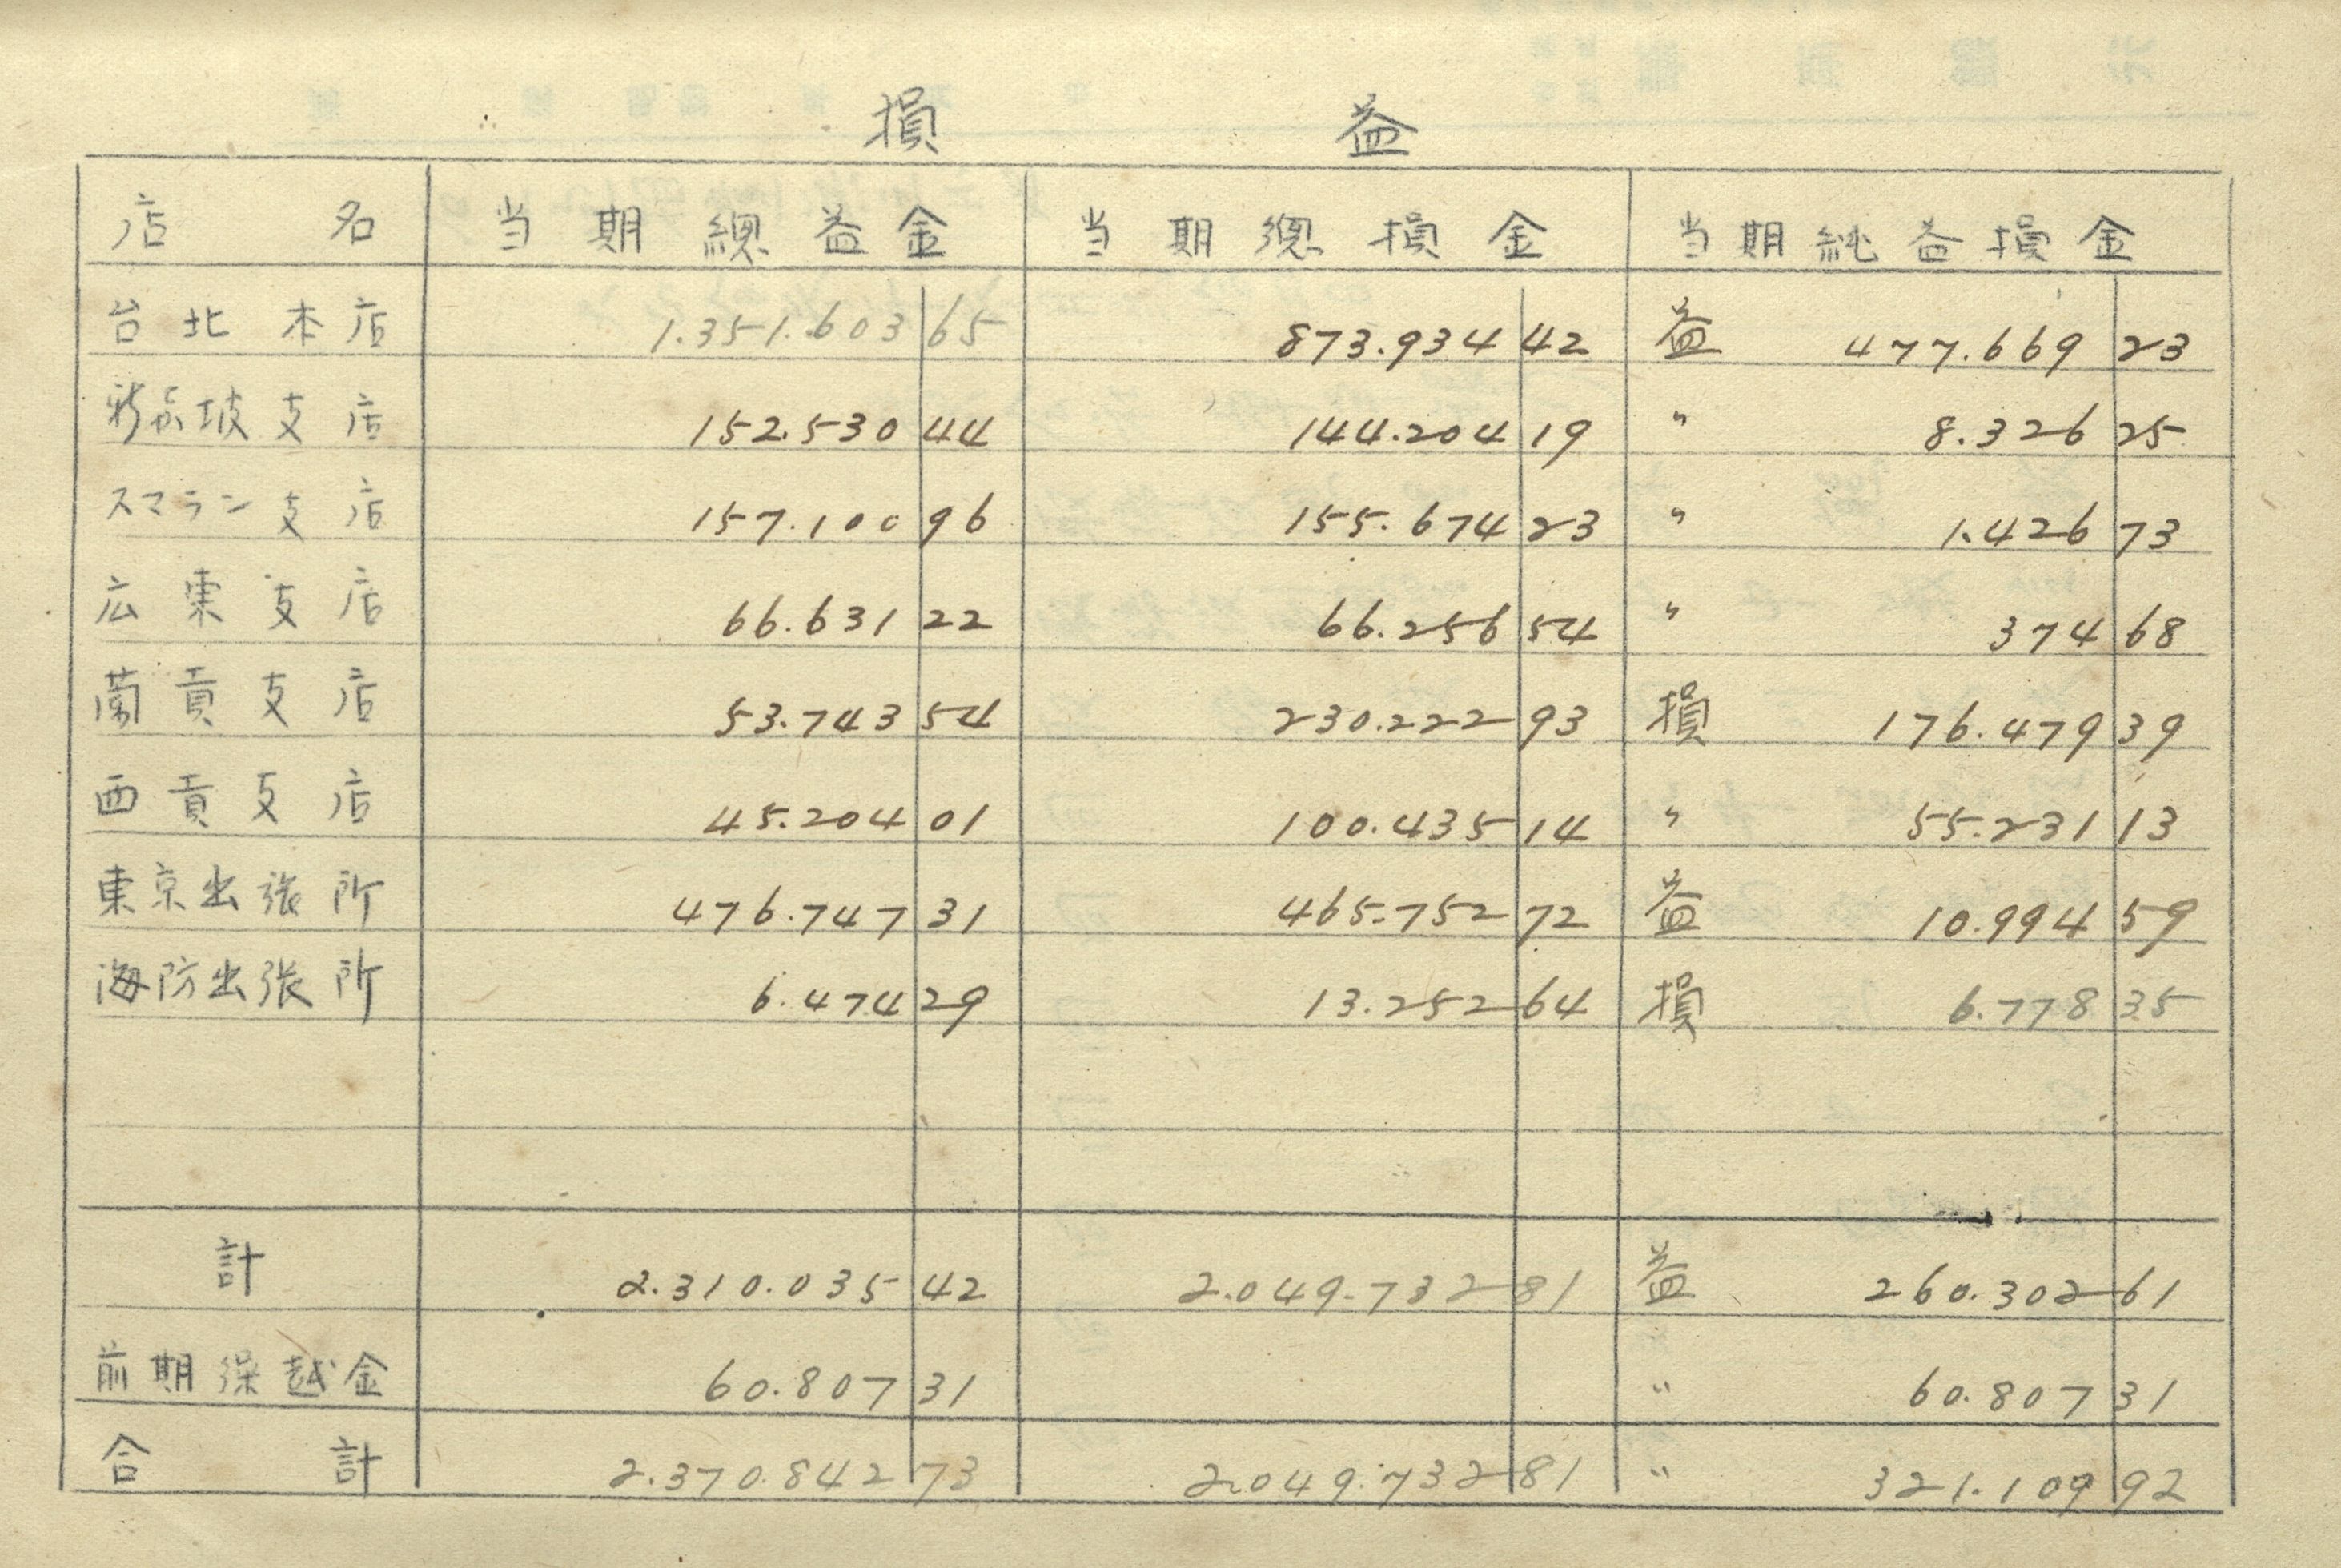 損 益
店名 当期總益金 当期總損金 当期純益損金
台北本店 1.351.603 65 873.934 42 益 477.669 23
新嘉坡支店 152.530 44 144.204 19 〃 8.326 25
スマラン支店 157.100 96 155.674 23 〃 1.426 73
広東支店 66.631 22 66.256 54 〃 374 68
蘭貢支店 53.743 54 230.222 93 損 176.479 39
西貢支店 45.204 01 100.435 14 〃 55.231 13
東京出張所 476.747 31 465.752 72 益 10.994 59
海防出張所 6.474 29 13.252 64 損 6.778 35
計 2.310.035 42 2.049.732 81 益 260.302 61
前期繰越金 60.807 31 〃 60.807 31
合計 2.370.842 73 2.049.732 81 〃 321.109 92